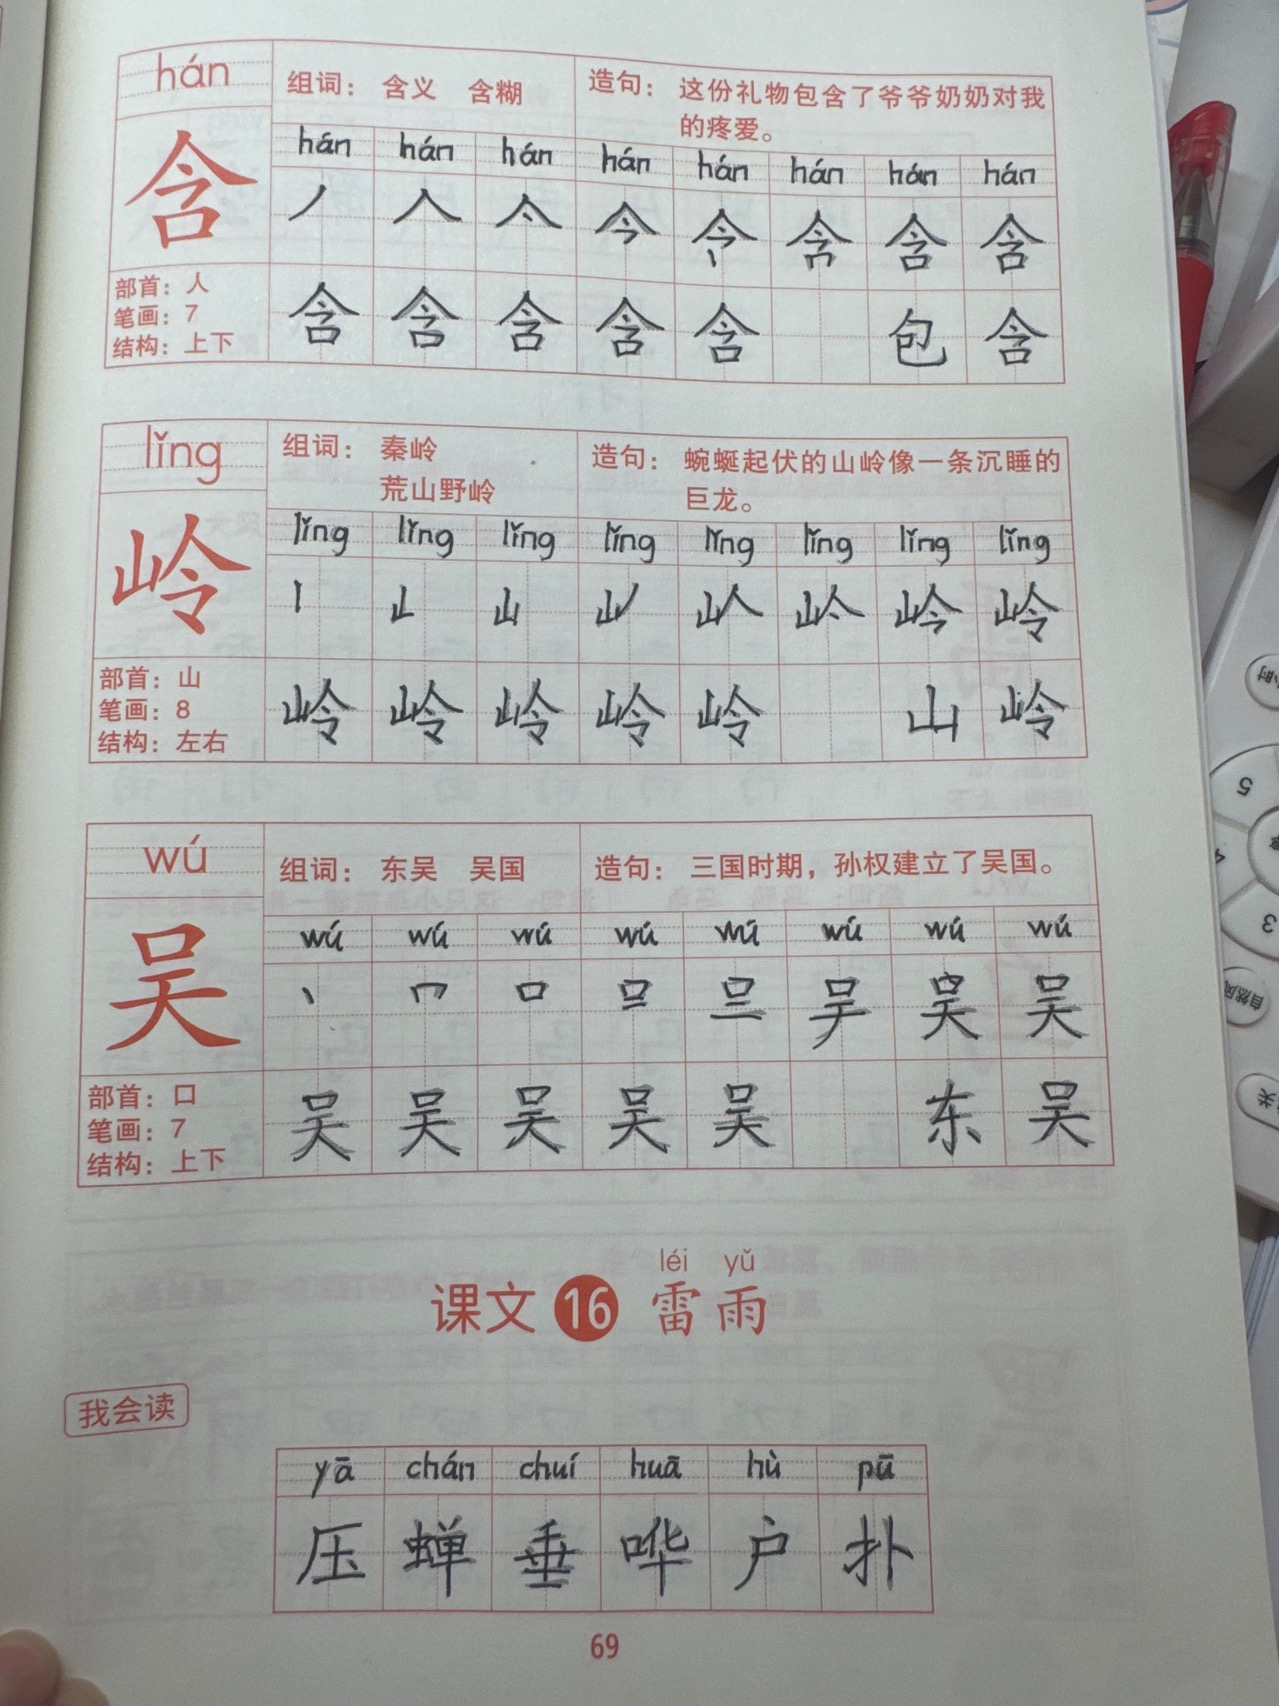 hán 组词： 含义 含糊 造句： 这份礼物包含了爷爷奶奶对我
的疼爱。
hán hán hán hán hán hán hán hán
含
部首：人
笔画：7
结构：上下
含 含 含 含 含 包 含
lǐng 组词： 秦岭 造句： 蜿蜒起伏的山岭像一条沉睡的
荒山野岭 巨龙。
lǐng lǐng lǐng lǐng lǐng lǐng lǐng lǐng
岭
部首：山
笔画：8
结构：左右
岭 岭 岭 岭 岭 山 岭
wú 组词： 东吴 吴国 造句： 三国时期，孙权建立了吴国。
wú wú wú wú wú wú wú wú
吴
部首：口
笔画：7
结构：上下
吴 吴 吴 吴 吴 东 吴
léi yǔ
课文 16 雷雨
我会读
yā chán chuí huā hù pū
压 蝉 垂 哗 户 扑
69
5
4
3
自然风